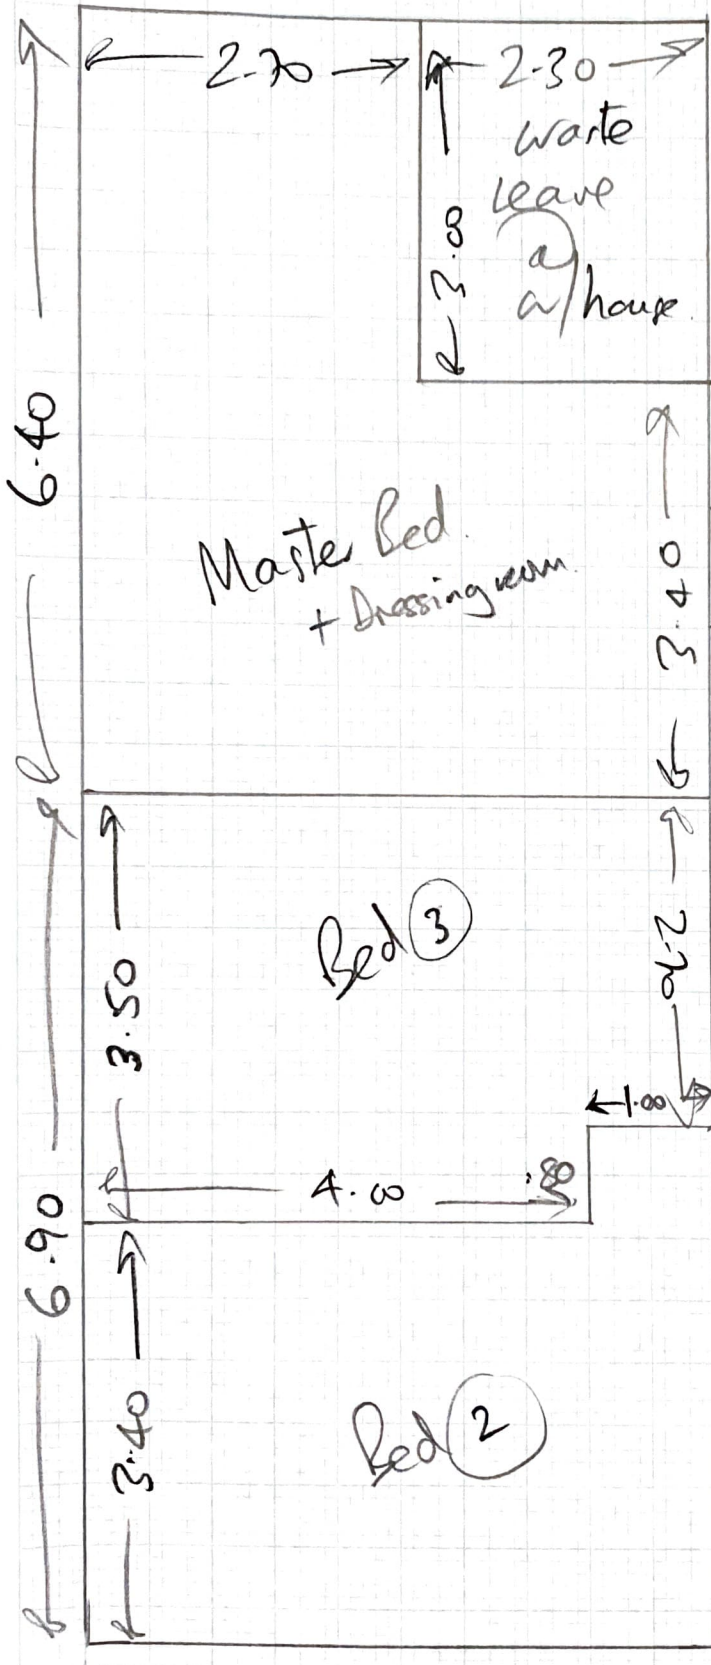 2.70
2.30
waste
leave
@
w/house.
3.00
6.40
Master Bed.
+ Dressing room.
3.40
Bed 3
2.70
3.50
1.00
.80
4.00
6.90
3.40
Bed 2